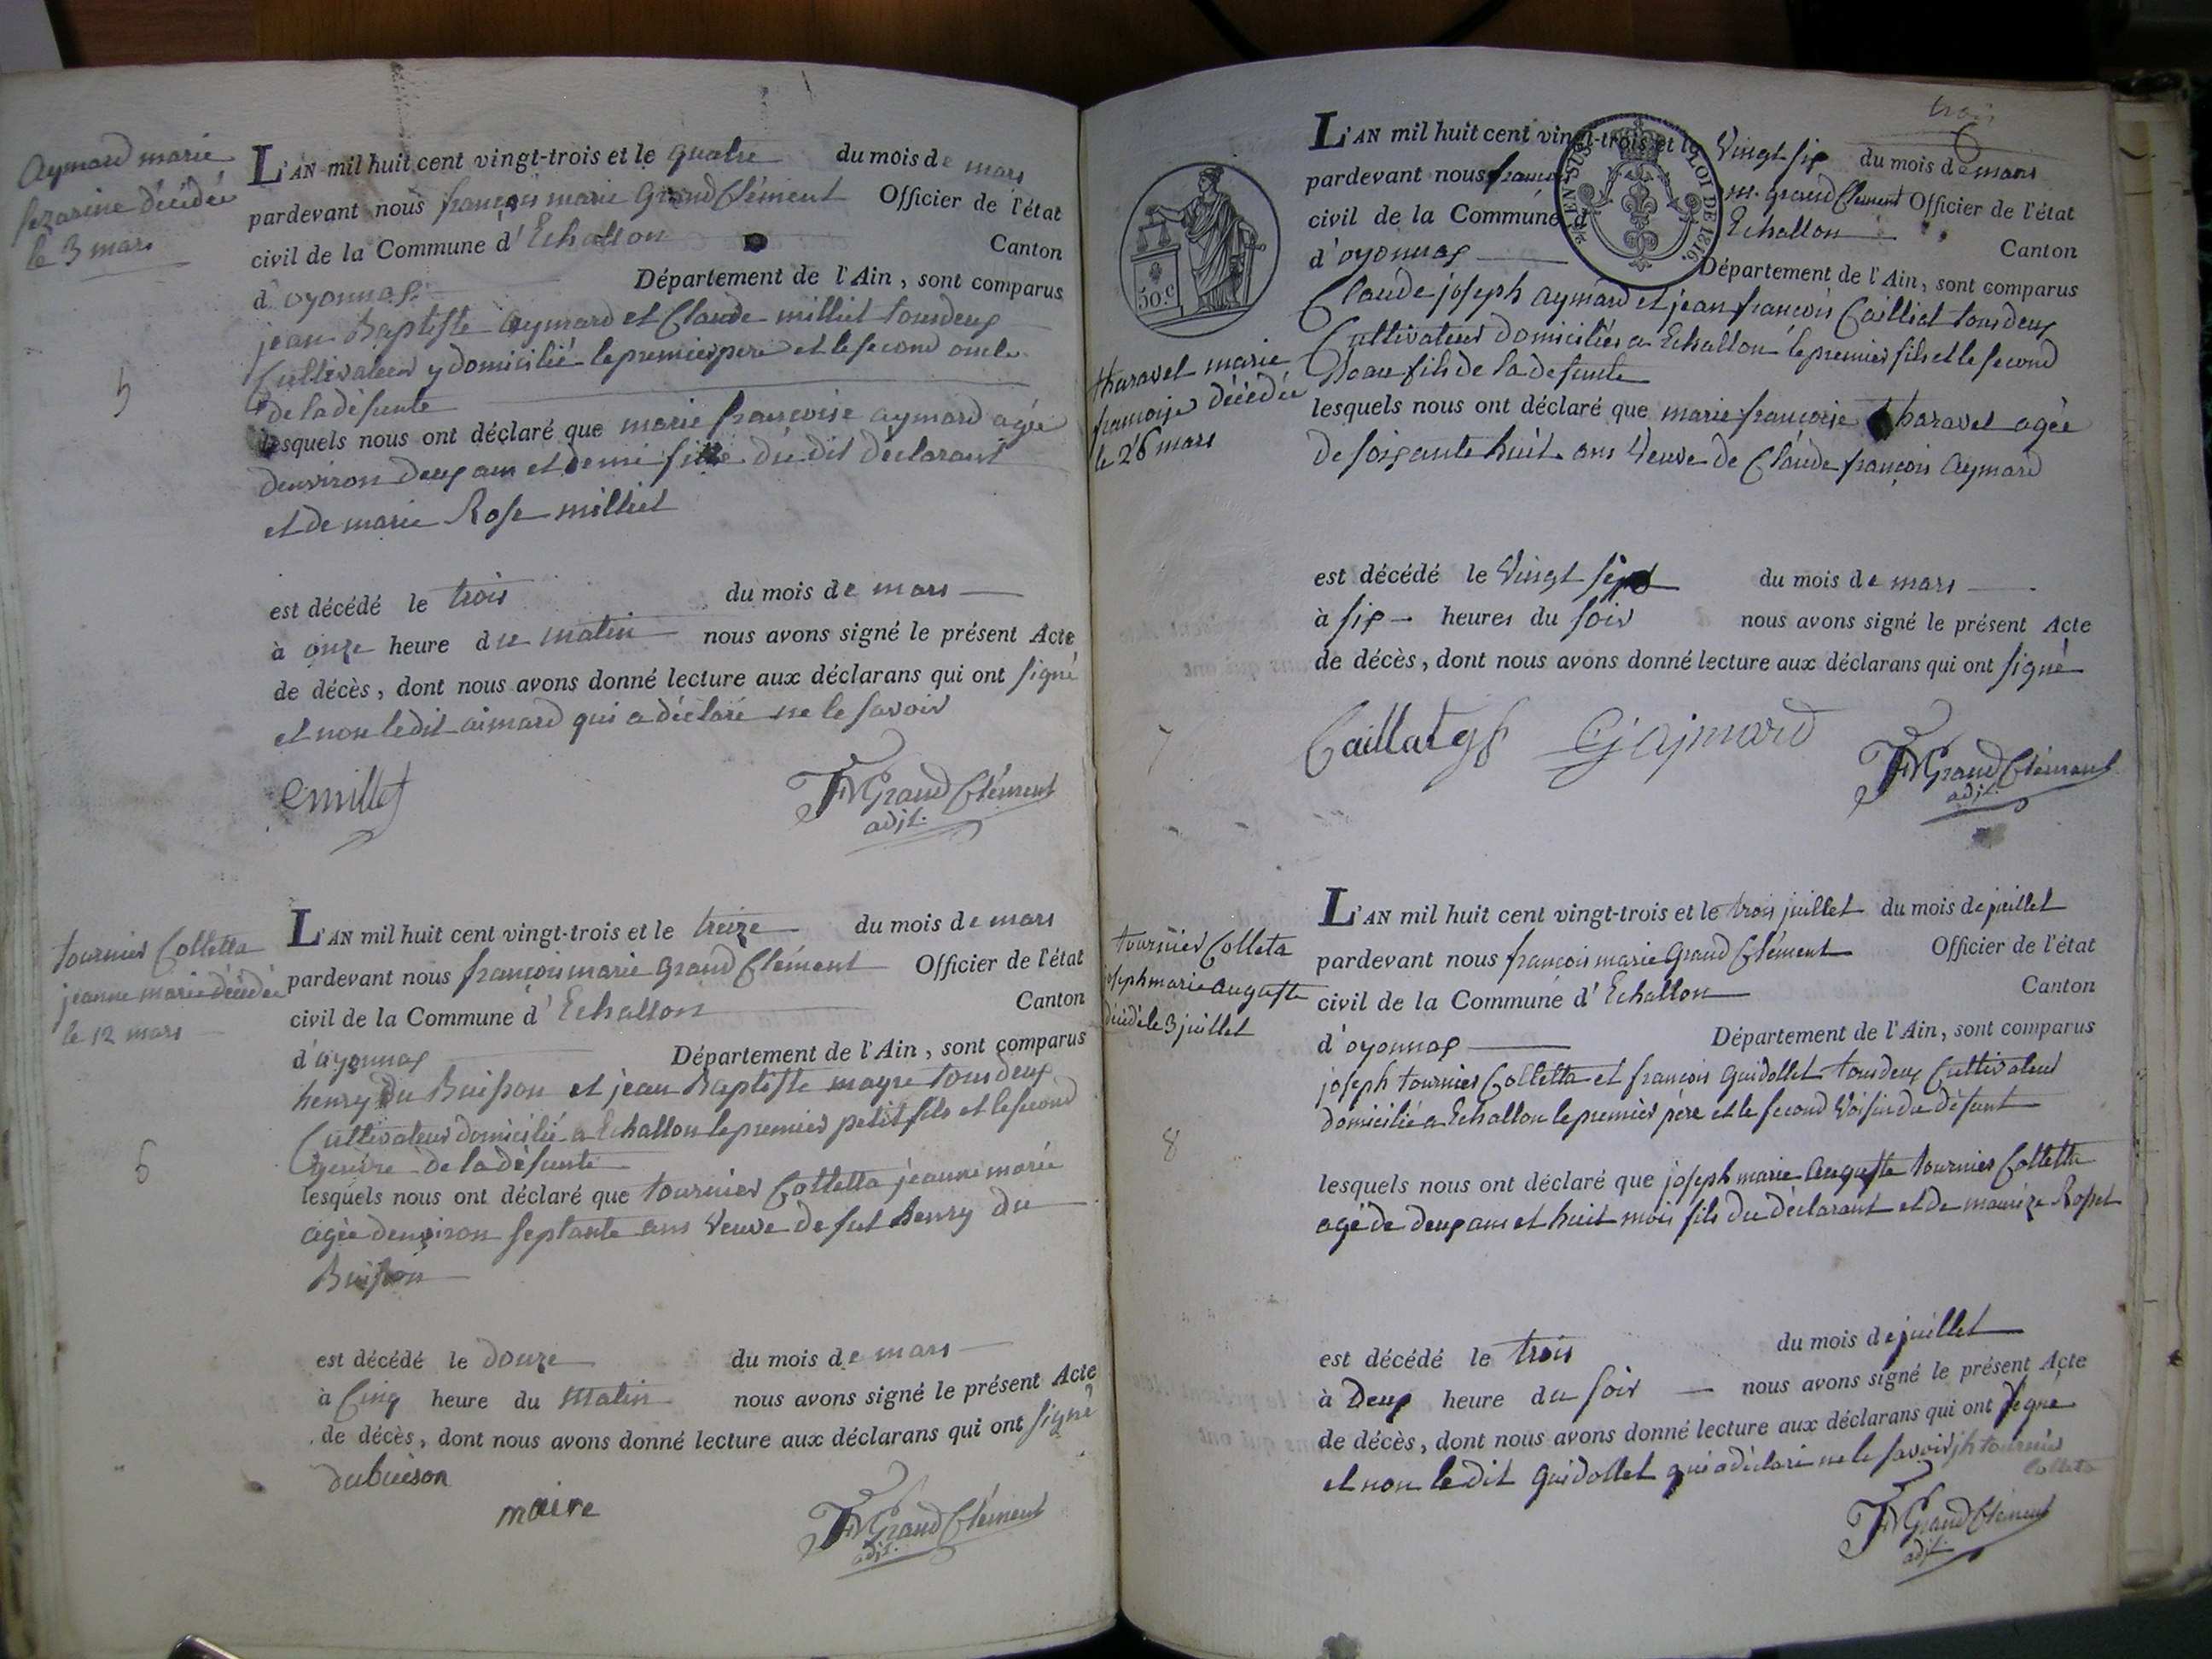 Aymard marie
sezarine décédée
le 3 mars
5
L'AN mil huit cent vingt-trois et le quatre du mois de mars
pardevant nous françois marie Grand Clément Officier de l'état
civil de la Commune d'Echallon Canton
d'oyonnax Département de l'Ain, sont comparus
jean Baptiste Aymard et Claude milliet tous deux
Cultivateur y domicilié le premier pere et le second oncle
de la défunte
lesquels nous ont déclaré que marie françoise aymard agée
denviron deux ans et demi fille du dit déclarant
et de marie Rose milliet
est décédé le trois du mois de mars
à onze heure du matin nous avons signé le présent Acte
de décès, dont nous avons donné lecture aux déclarans qui ont signé
et non ledit aimard qui a déclaré ne le savoir
Cmillet
FM Grand Clément
adjt.
tournier Colletta
jeanne marie décédée
le 12 mars
6
L'AN mil huit cent vingt-trois et le treize du mois de mars
pardevant nous françois marie Grand Clément Officier de l'état
civil de la Commune d'Echallon Canton
d'oyonnax Département de l'Ain, sont comparus
henry Du Buisson et jean Baptiste mayre tous deux
Cultivateur domicilié a Echallon le premier petit fils et le second
gendre de la défunte
lesquels nous ont déclaré que tournier Colletta jeanne marie
agée denviron septante ans Veuve de fut henry Du
Buisson
est décédé le douze du mois de mars
à Cinq heure du Matin nous avons signé le présent Acte
de décès, dont nous avons donné lecture aux déclarans qui ont signé
dubuison
maire
FM Grand Clément
adjt.
trois
50.c
EN SUS LOI DE 1816.
tharavel marie
françoise décédée
le 26 mars
7
L'AN mil huit cent vingt-trois et le Vingt six du mois de mars
pardevant nous françois m. grand Clement Officier de l'état
civil de la Commune d'Echallon Canton
d'oyonnax Département de l'Ain, sont comparus
Claude joseph aymard et jean françois Cailliat tous deux
Cultivateur domiciliés a Echallon le premier fils et le second
beau fils de la defunte
lesquels nous ont déclaré que marie françoise tharavel agée
de soixante huit ans Veuve de Claude françois Aymard
est décédé le Vingt six du mois de mars
à six heures du soir nous avons signé le présent Acte
de décès, dont nous avons donné lecture aux déclarans qui ont signé
Caillat
CJ ajmard
FM Grand Clément
adjt.
tournier Colleta
joseph marie auguste
décédé le 3 juillet
8
L'AN mil huit cent vingt-trois et le trois juillet du mois de juillet
pardevant nous françois marie Grand Clément Officier de l'état
civil de la Commune d'Echallon Canton
d'oyonnax Département de l'Ain, sont comparus
joseph tournier Colletta et françois Guidollet tous deux Cultivateur
domicilié a Echallon le premier père et le second Voisin du défunt
lesquels nous ont déclaré que joseph marie Auguste tournier Colletta
agé de deux ans et huit mois fils du déclarant et de Rosset
est décédé le trois du mois de juillet
à Deux heure du soir nous avons signé le présent Acte
de décès, dont nous avons donné lecture aux déclarans qui ont signé
et non le dit Guidollet qui a déclaré ne le savoir jh tournier
Colleta
FM Grand Clément
adjt.